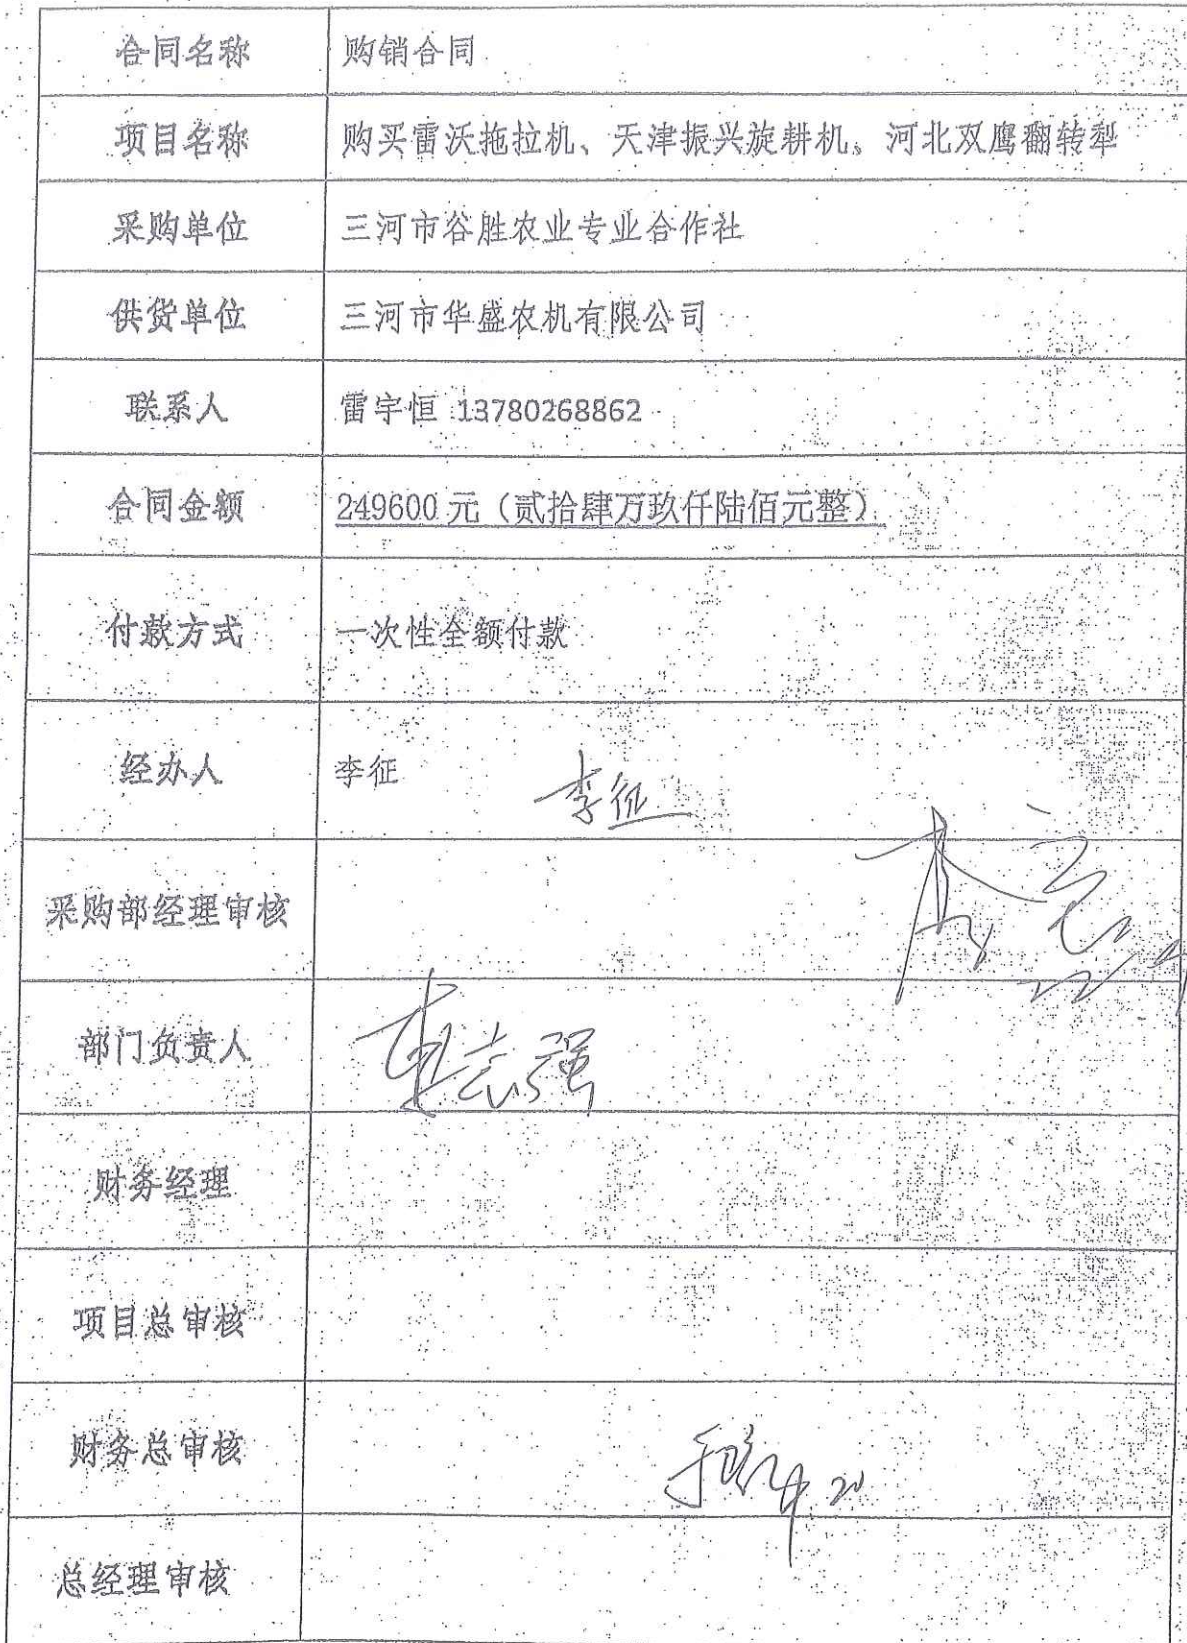 合同名称 购销合同
项目名称 购买雷沃拖拉机、天津振兴旋耕机、河北双鹰翻转犁
采购单位 三河市谷胜农业专业合作社
供货单位 三河市华盛农机有限公司
联系人 雷宇恒 13780268862
合同金额 249600 元（贰拾肆万玖仟陆佰元整）
付款方式 一次性全额付款
经办人 李征 李征
采购部经理审核
部门负责人
财务经理
项目总审核
财务总审核
总经理审核